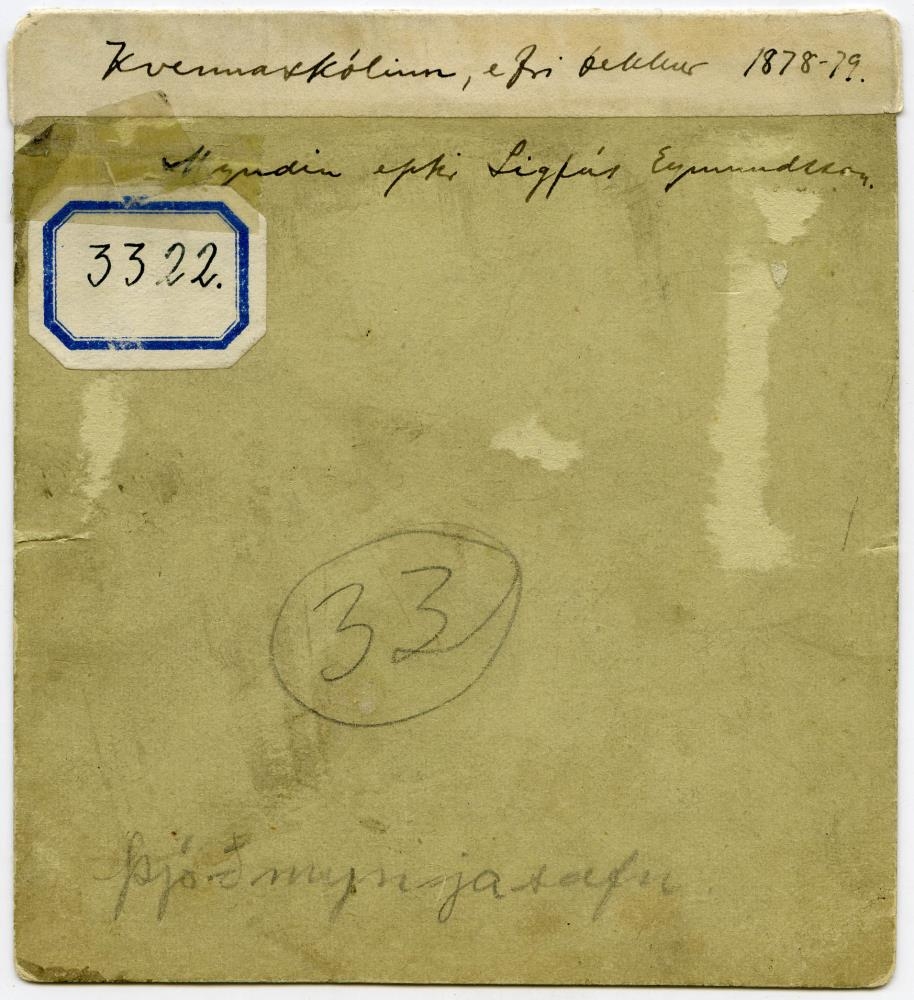 Kvennaskólinn, efri bekkur 1878-79.
Myndin eptir Sigfús Eymundsson.
3322.
33
Þjóðmynjasafn.